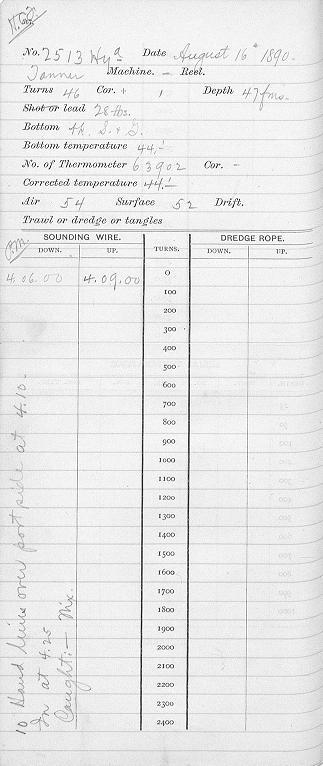 No. 2513 Hyd Date August 16" 1890.
Tanner Machine. – Reel.
Turns 46 Cor. + 1 Depth 47 fms.
Shot or lead 28 lbs.
Bottom
Bottom temperature 44.–
No. of Thermometer 63902 Cor. –
Corrected temperature 44.–
Air 54 Surface 52 Drift.
Trawl or dredge or tangles
P.M.
SOUNDING WIRE. TURNS. DREDGE ROPE.
DOWN. UP. DOWN. UP.
4.06.00 4.09.00 0
100
200
300
400
500
600
700
800
900
1000
1100
1200
1300
1400
1500
1600
1700
1800
1900
2000
2100
2200
2300
2400
10 Hand lines over port side at 4.10.
In at 4.25
Caught:– Nix.